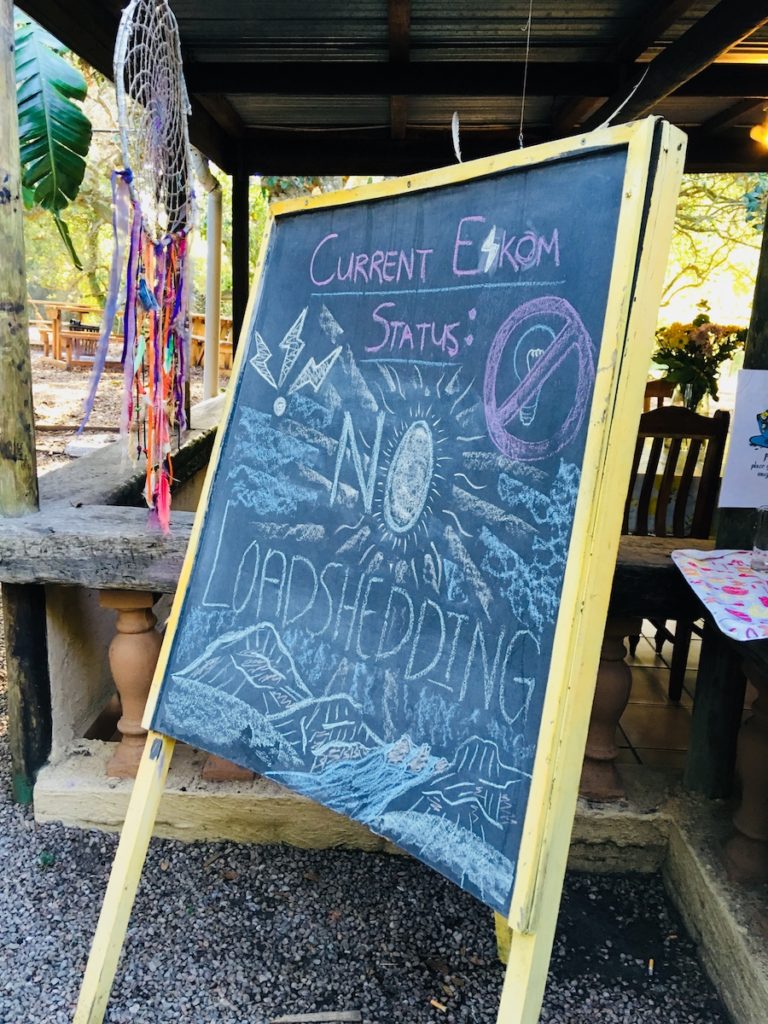 CURRENT ESKOM
STATUS:
NO
LOADSHEDDING